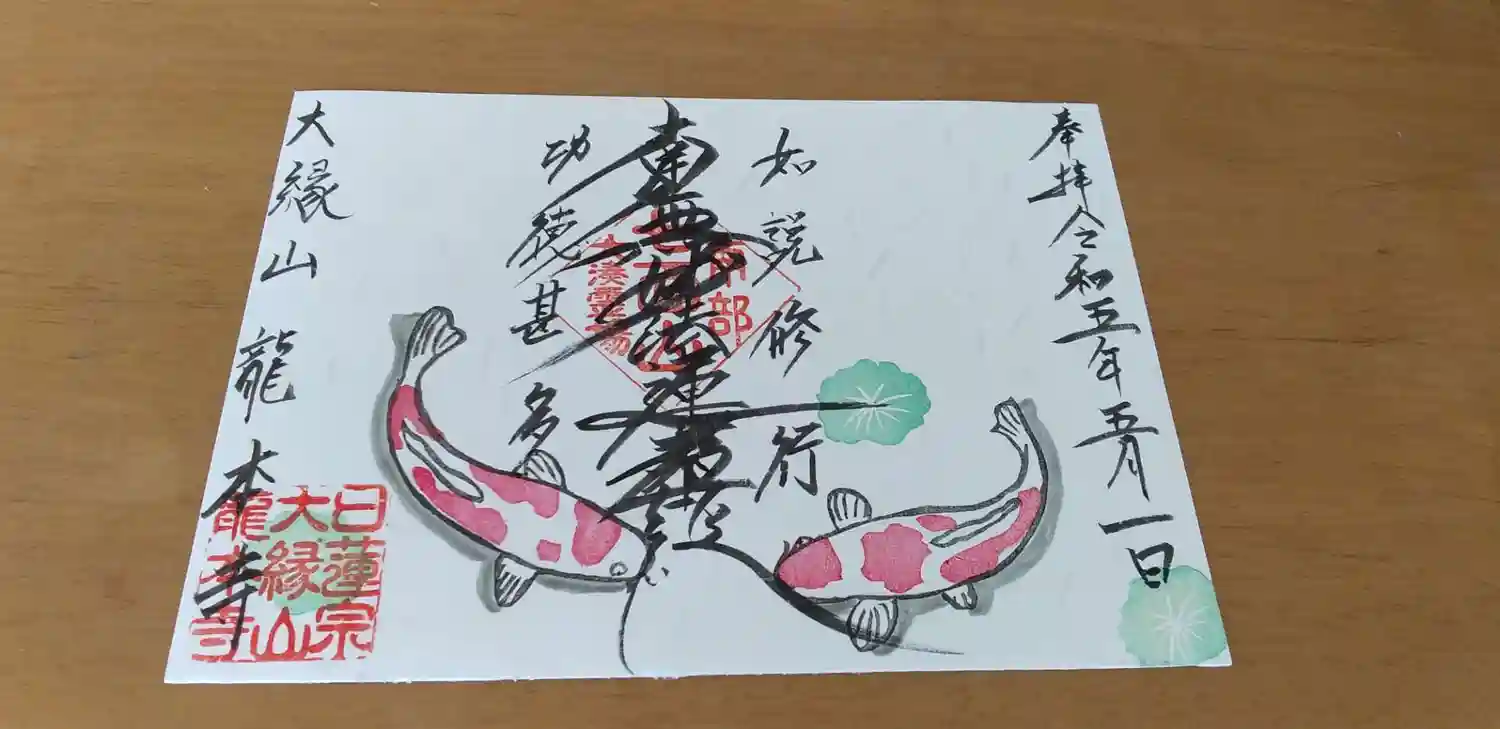 奉拝 令和五年五月一日
如説修行
南無妙法蓮華経
功徳甚多
大縁山 龍本寺
南部
大湊霊場
日蓮宗
大縁山
龍本寺